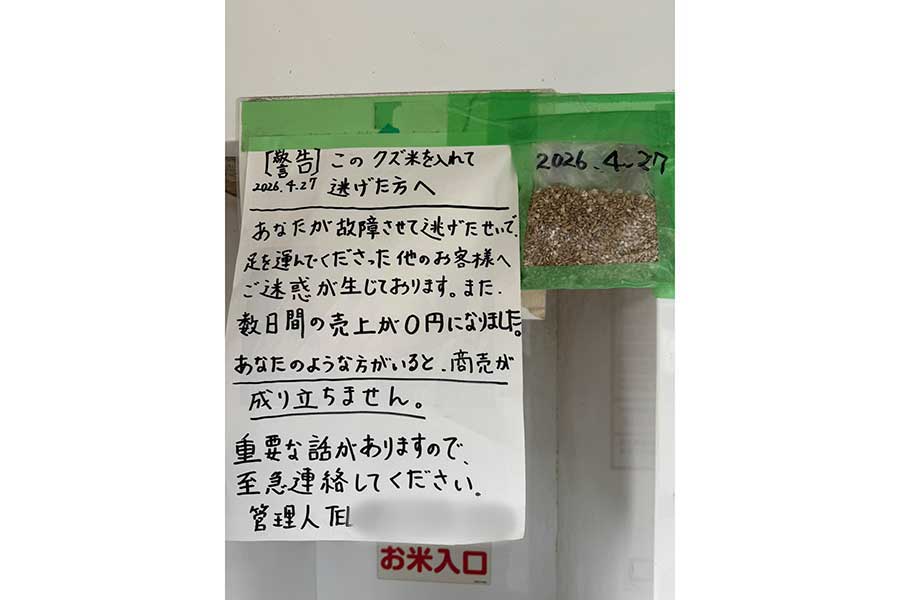 [警告] このクズ米を入れて
2026.4.27 逃げた方へ
あなたが故障させて逃げたせいで、
足を運んでくださった他のお客様へ
ご迷惑が生じております。また、
数日間の売上が0円になりました。
あなたのような方がいると、商売が
成り立ちません。
重要な話がありますので、
至急連絡してください。
管理人 TEL
2026.4.27
お米入口